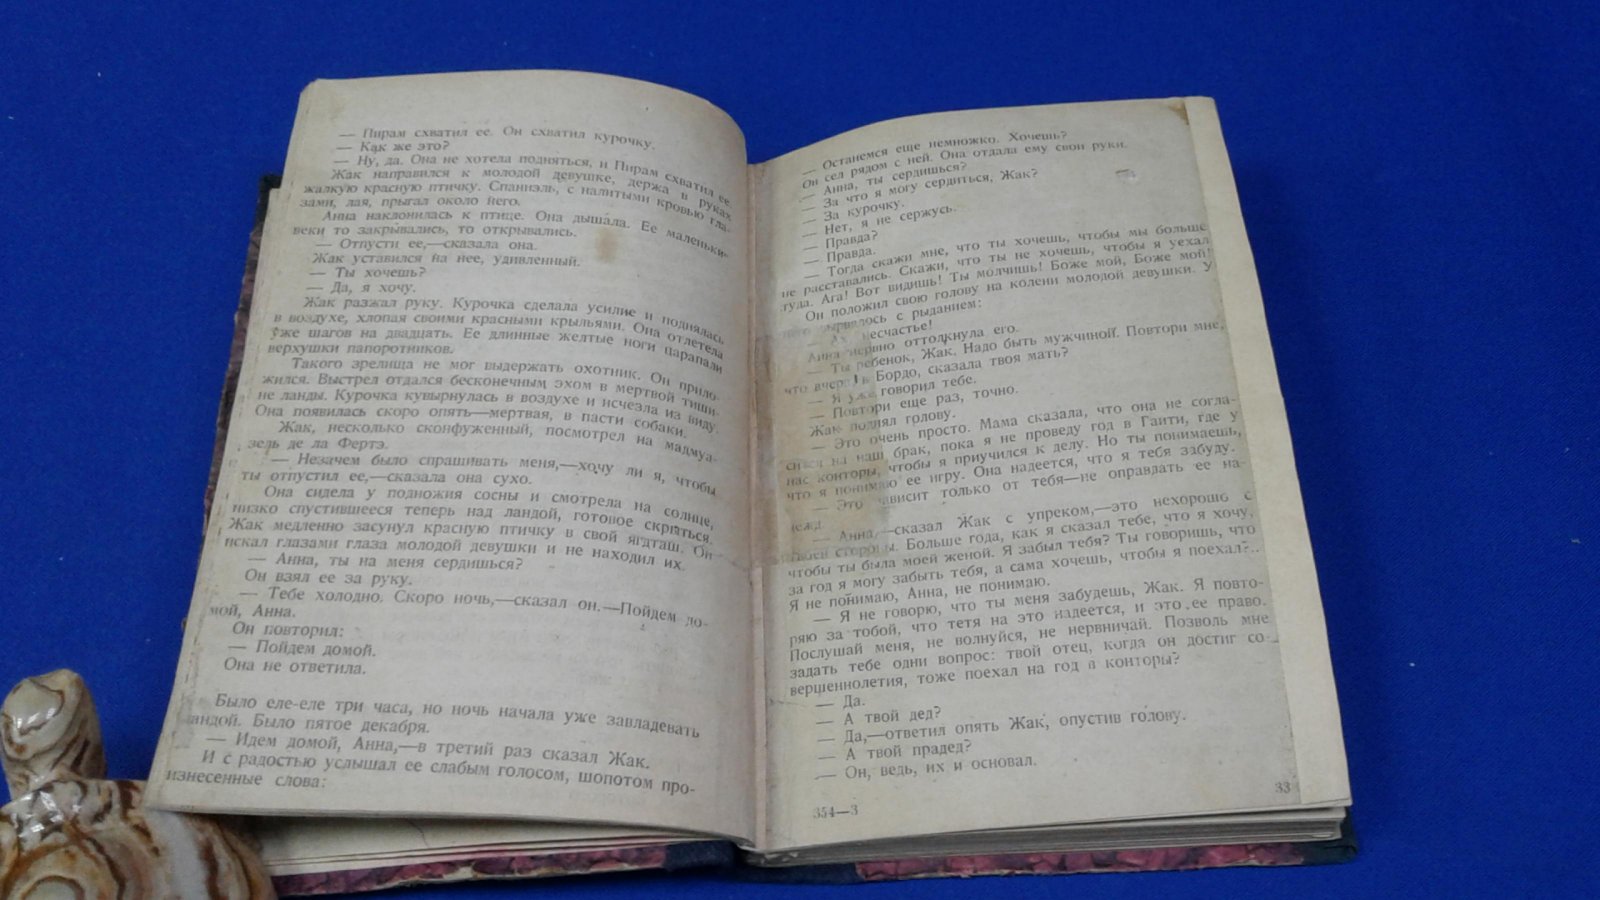 — Пирам схватил ее. Он схватил курочку.
— Как же это?
— Ну, да. Она не хотела подняться, и Пирам схватил ее.
Жак направился к молодой девушке, держа в руках
жалкую красную птичку. Спаниэль, с налитыми кровью гла-
зами, лая, прыгал около него.
Анна наклонилась к птице. Она дышала. Ее маленькие
веки то закрывались, то открывались.
— Отпусти ее,—сказала она.
Жак уставился на нее, удивленный.
— Ты хочешь?
— Да, я хочу.
Жак разжал руку. Курочка сделала усилие и поднялась
в воздухе, хлопая своими красными крыльями. Она отлетела
уже шагов на двадцать. Ее длинные желтые ноги царапали
верхушки папоротников.
Такого зрелища не мог выдержать охотник. Он прило-
жился. Выстрел отдался бесконечным эхом в мертвой тиши-
не ланды. Курочка кувырнулась в воздухе и исчезла из виду.
Она появилась скоро опять—мертвая, в пасти собаки.
Жак, несколько сконфуженный, посмотрел на мадмуа-
зель де ла Фертэ.
— Незачем было спрашивать меня,—хочу ли я, чтобы
ты отпустил ее,—сказала она сухо.
Она сидела у подножия сосны и смотрела на солнце,
низко спустившееся теперь над ландой, готовое скрыться.
Жак медленно засунул красную птичку в свой ягдташ. Он
искал глазами глаза молодой девушки и не находил их.
— Анна, ты на меня сердишься?
Он взял ее за руку.
— Тебе холодно. Скоро ночь,—сказал он.—Пойдем до-
мой, Анна.
Он повторил:
— Пойдем домой.
Она не ответила.
Было еле-еле три часа, но ночь начала уже завладевать
ландой. Было пятое декабря.
— Идем домой, Анна,—в третий раз сказал Жак.
И с радостью услышал ее слабым голосом, шопотом про-
изнесенные слова:
— Останемся еще немножко. Хочешь?
Он сел рядом с ней. Она отдала ему свои руки.
— Анна, ты сердишься?
— За что я могу сердиться, Жак?
— За курочку.
— Нет, я не сержусь.
— Правда?
— Правда.
— Тогда скажи мне, что ты хочешь, чтобы мы больше
не расставались. Скажи, что ты не хочешь, чтобы я уехал
туда. Ага! Вот видишь! Ты молчишь! Боже мой, Боже мой!
Он положил свою голову на колени молодой девушки. У
него вырвалось с рыданием:
— Ах, несчастье!
Анна нервно оттолкнула его.
— Ты ребенок, Жак. Надо быть мужчиной. Повтори мне,
что вчера, в Бордо, сказала твоя мать?
— Я уже говорил тебе.
— Повтори еще раз, точно.
Жак поднял голову.
— Это очень просто. Мама сказала, что она не согла-
сится на наш брак, пока я не проведу год в Гаити, где у
нас конторы, чтобы я приучился к делу. Но ты понимаешь,
что я понимаю ее игру. Она надеется, что я тебя забуду.
— Это зависит только от тебя—не оправдать ее на-
дежд.
— Анна,—сказал Жак с упреком,—это нехорошо с
твоей стороны. Больше года, как я сказал тебе, что я хочу,
чтобы ты была моей женой. Я забыл тебя? Ты говоришь, что
за год я могу забыть тебя, а сама хочешь, чтобы я поехал?..
Я не понимаю, Анна, не понимаю.
— Я не говорю, что ты меня забудешь, Жак. Я повто-
ряю за тобой, что тетя на это надеется, и это ее право.
Послушай меня, не волнуйся, не нервничай. Позволь мне
задать тебе один вопрос: твой отец, когда он достиг со-
вершеннолетия, тоже поехал на год в конторы?
— Да.
— А твой дед?
— Да,—ответил опять Жак, опустив голову.
— А твой прадед?
— Он, ведь, их и основал.
354—3
33